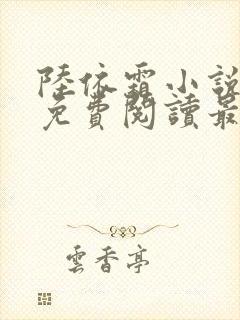 陸依霜小說
免費閱讀最
雲香亭